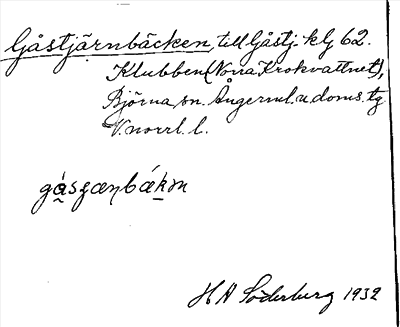 Gåstjärnbäcken, till Gåstj. klg 62.
Klubben (Norra Krokvattnet),
Björna sn. Ångerml. u. doms. tg
V. norrl. l.
H A Söderberg 1932